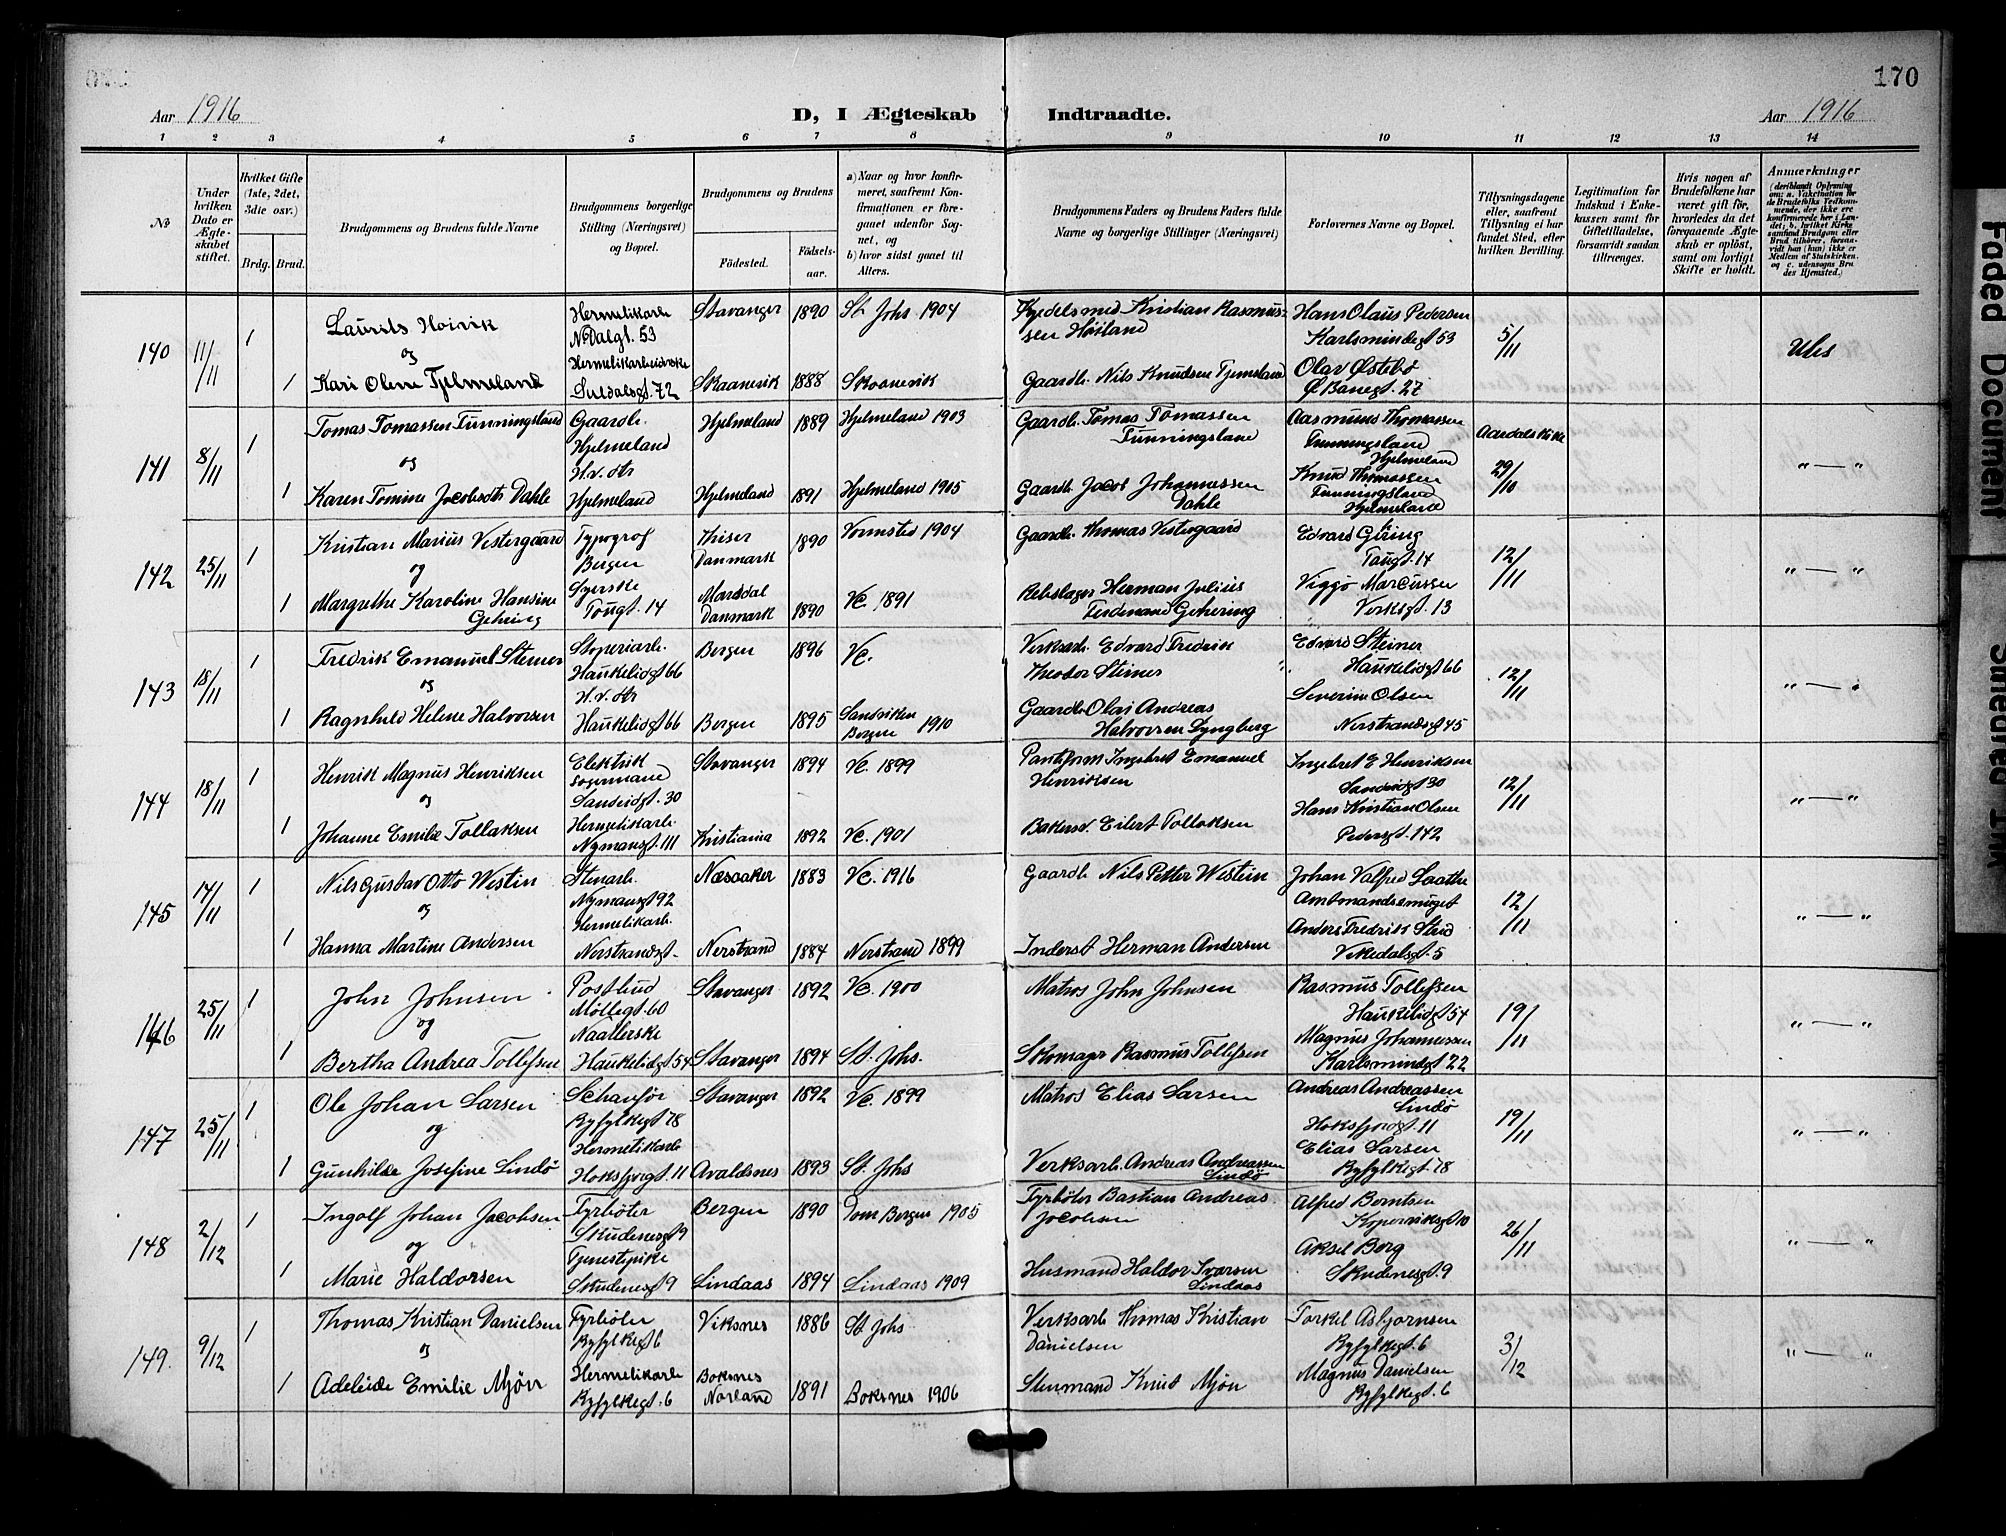 170
Aar 1916
D, I Ægteskab Indtraadte.
Aar 1916
1 2 3 4 5 6 7 8 9 10 11 12 13 14
№
Under hvilken Dato er Ægteskabet stiftet.
Hvilket Gifte (1ste, 2det, 3die osv.)
Brdg. Brud.
Brudgommens og Brudens fulde Navne
Brudgommens borgerlige Stilling (Næringsvei) og Bopæl.
Brudgommens og Brudens
Fødested.
Fødselsaar.
a) Naar og hvor konfirmeret, saafremt Konfirmationen er foregaaet udenfor Sognet, og
b) hvor sidst gaaet til Alters.
Brudgommens Faders og Brudens Faders fulde Navne og borgerlige Stillinger (Næringsvei)
Forlovernes Navne og Bopæl.
Tillysningsdagene eller, saafremt Tillysning ei har fundet Sted, efter hvilken Bevilling.
Legitimation for Indskud i Enkekassen samt for Giftetilladelse, forsaavidt saadan tiltrænges.
Hvis nogen af Brudefolkene har været gift før, hvorledes da det foregaaende Ægteskab er opløst, samt om lovligt Skifte er holdt.
Anmærkninger
140 11/11 1 Laurits Hoivik Hermetikarb N. Dalgt. 53 Stavanger 1890 St Johs 1904 Kjedelsmed Kristian Rasmussen Høiland Hans Olaus Pedersen Karlsmindegt 53 5/11
og
1 Kari Oline Tjelmeland Hermetikarbeiderske Suldalsgt. 72 Skaanevik 1888 Skaanevik Gaardb. Nils Knudsen Tjemsland Olav Østebø Ø Banegt. 27
141 8/11 1 Tomas Tomassen Funningsland Gaardb. Hjelmeland Hjelmeland 1889 Hjelmeland 1903 Gaardb. Tomas Tomassen Funningsland Aasmund Thomassen Funningsland Hjelmeland Aardals Kirke 29/10 " — "
og
1 Karen Tomine Jacobsdtr Dahle H.v. dtr Hjelmeland Hjelmeland 1891 Hjelmeland 1905 Gaardb. Jacob Johannessen Dahle Knud Thomassen Funningsland Hjelmeland
142 25/11 1 Kristian Marius Vestergaard Typograf Bergen Danmark 1890 Vormsted 1904 Gaardb. Thomas Vestergaard Edvard Gering Taugt. 14 12/11 " — "
og
1 Margrethe Karoline Hansine Gehring Syerske Tougt. 14 Danmark 1890 Vc. 1891 Rebslager Herman Julius Ferdinand Gehering Viggo Marcussen Verksgt. 13
143 18/11 1 Fredrik Emanuel Steiner Stoperiarb. Haukelidgt 66 Bergen 1896 Vc. Verksarb. Edvard Fredrik Theodor Steiner Edvard Steiner Haukelidgt 66 12/11 " — "
og
1 Ragnhild Helene Halvorsen H.v. dtr Haukelidgt 66 Bergen 1895 Sandviken Bergen 1910 Gaardb. Olai Andreas Halvorsen Lyngberg Severin Olsen Nerstrandsgt 45
144 18/11 1 Henrik Magnus Henriksen Elektrik Sandeidgt. 30 Stavanger 1894 Vc. 1899 Ingebret Emanuel Henriksen Ingebret E Henriksen Sandeidgt 30 12/11 " — "
og
1 Johanne Emilie Tollaksen Hermetikarb. Nymansgt. 111 Kristiania 1892 Vc. 1901 Bakersv. Eilert Tollaksen Hans Kristian Olsen Pedersgt. 142
145 14/11 1 Nils Gustav Otto Westin Stenarb. Nymansgt 92 Næsaaker 1883 Vc. 1916 Gaardb Nils Petter Westein Johan Valfred Saathe 12/11 " — "
og
1 Hanna Martine Andersen Hermetikarb. Nerstrandsgt. Nerstrand 1884 Nerstrand 1899 Inderst Herman Andersen Anders Fredrik Strid Vikedalsgt. 5
146 25/11 1 John Johnsen Postbud Møllegt. 60 Stavanger 1892 Vc. 1900 Matros John Johnsen Rasmus Tollefsen Haukelidgt 54 19/11 " — "
og
1 Bertha Andrea Tollefsen Naatlerske Haukelidgt 54 Stavanger 1894 St. Johs. Skomager Rasmus Tollefsen Magnus Johannessen Karlsmindgt 22
147 25/11 1 Ole Johan Larsen Schaufør Ryfylkegt 78 Stavanger 1892 Vc. 1899 Matros Elias Larsen Andreas Andreassen Lindø Hoksfjordgt. 11 19/11 " — "
og
1 Gunhilde Josefine Lindø Hermetikarb Hoksfjorgt. 11 Avaldsnes 1893 St. Johs Verksarb. Andreas Andreassen Lindø Elias Larsen Ryfylkegt. 78
148 2/12 1 Ingolf Johan Jacobsen Fyrbøter Skudenesgt 9 Bergen 1890 Dom Bergen 1905 Fyrbøter Bastian Andreas Jacobsen Alfred Berntsen Kopervikgt 10 26/11 " — "
og
1 Marie Haldorsen Tjenestepike Skudenesgt 9 Lindaas 1894 Lindaas 1909 Husmand Haldor Ivarsen Lindaas Aksel Berg Skudenesgt. 9
149. 9/12 1 Thomas Kristian Danielsen Fyrbøter Ryfylkegt 6 Viksnes 1886 St. Johs Verksarb Thomas Kristian Danielsen Torkel Asbjørnsen Ryfylkegt. 6 3/12 " — "
og
1 Adeleide Emilie Mjøn Hermetikarb Ryfylkegt. 6 Boksnes Norland 1891 Boksnes 1906 Stenmand Knut Mjøn Magnus Danielsen Ryfylkegt. 6
Faded Document
Snieded Ink